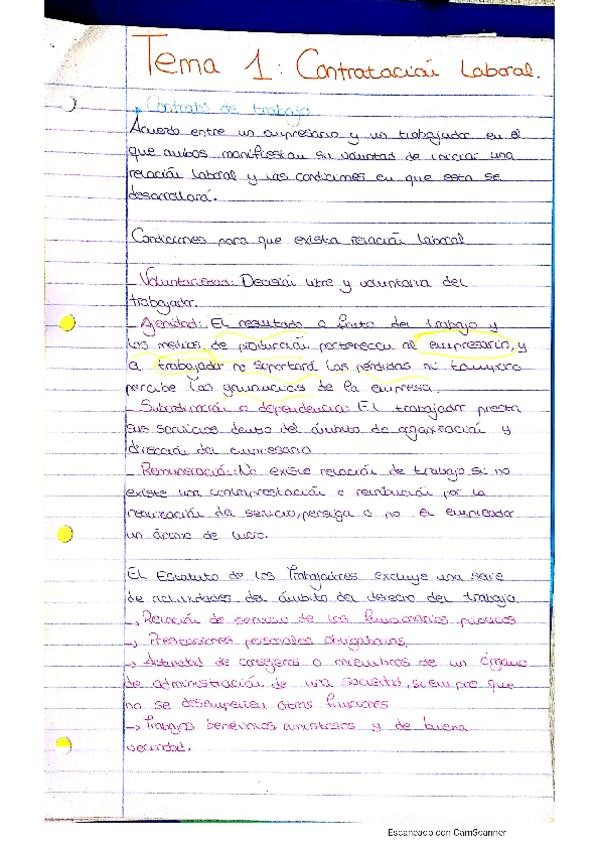 Tema 1: Contratación laboral.
Contrato de trabajo
Acuerdo entre un empresario y un trabajador en el
que ambos manifiestan su voluntad de iniciar una
relación laboral y las condiciones en que esta se
desarrollará.
Condiciones para que exista relación laboral
- Voluntariedad: Decisión libre y voluntaria del
trabajador.
- Ajenidad: El resultado o fruto del trabajo y
los medios de producción pertenecen al empresario, y
el trabajador no soportará las pérdidas ni tampoco
percibe las ganancias de la empresa.
- Subordinación o dependencia: El trabajador presta
sus servicios dentro del ámbito de organización y
dirección del empresario
- Remuneración: No existe relación de trabajo si no
existe una contraprestación o retribución por la
realización del servicio, persiga o no el empleador
un ánimo de lucro.
El Estatuto de los Trabajadores excluye una serie
de actividades del ámbito del derecho del trabajo.
→ Relación de servicio de los funcionarios públicos
→ Prestaciones personales obligatorias.
→ Actividad de consejeros o miembros de un órgano
de administración de una sociedad, siempre que
no se desempeñen otras funciones
→ Trabajos benévolos amistosos y de buena
vecindad.
Escaneado con CamScanner